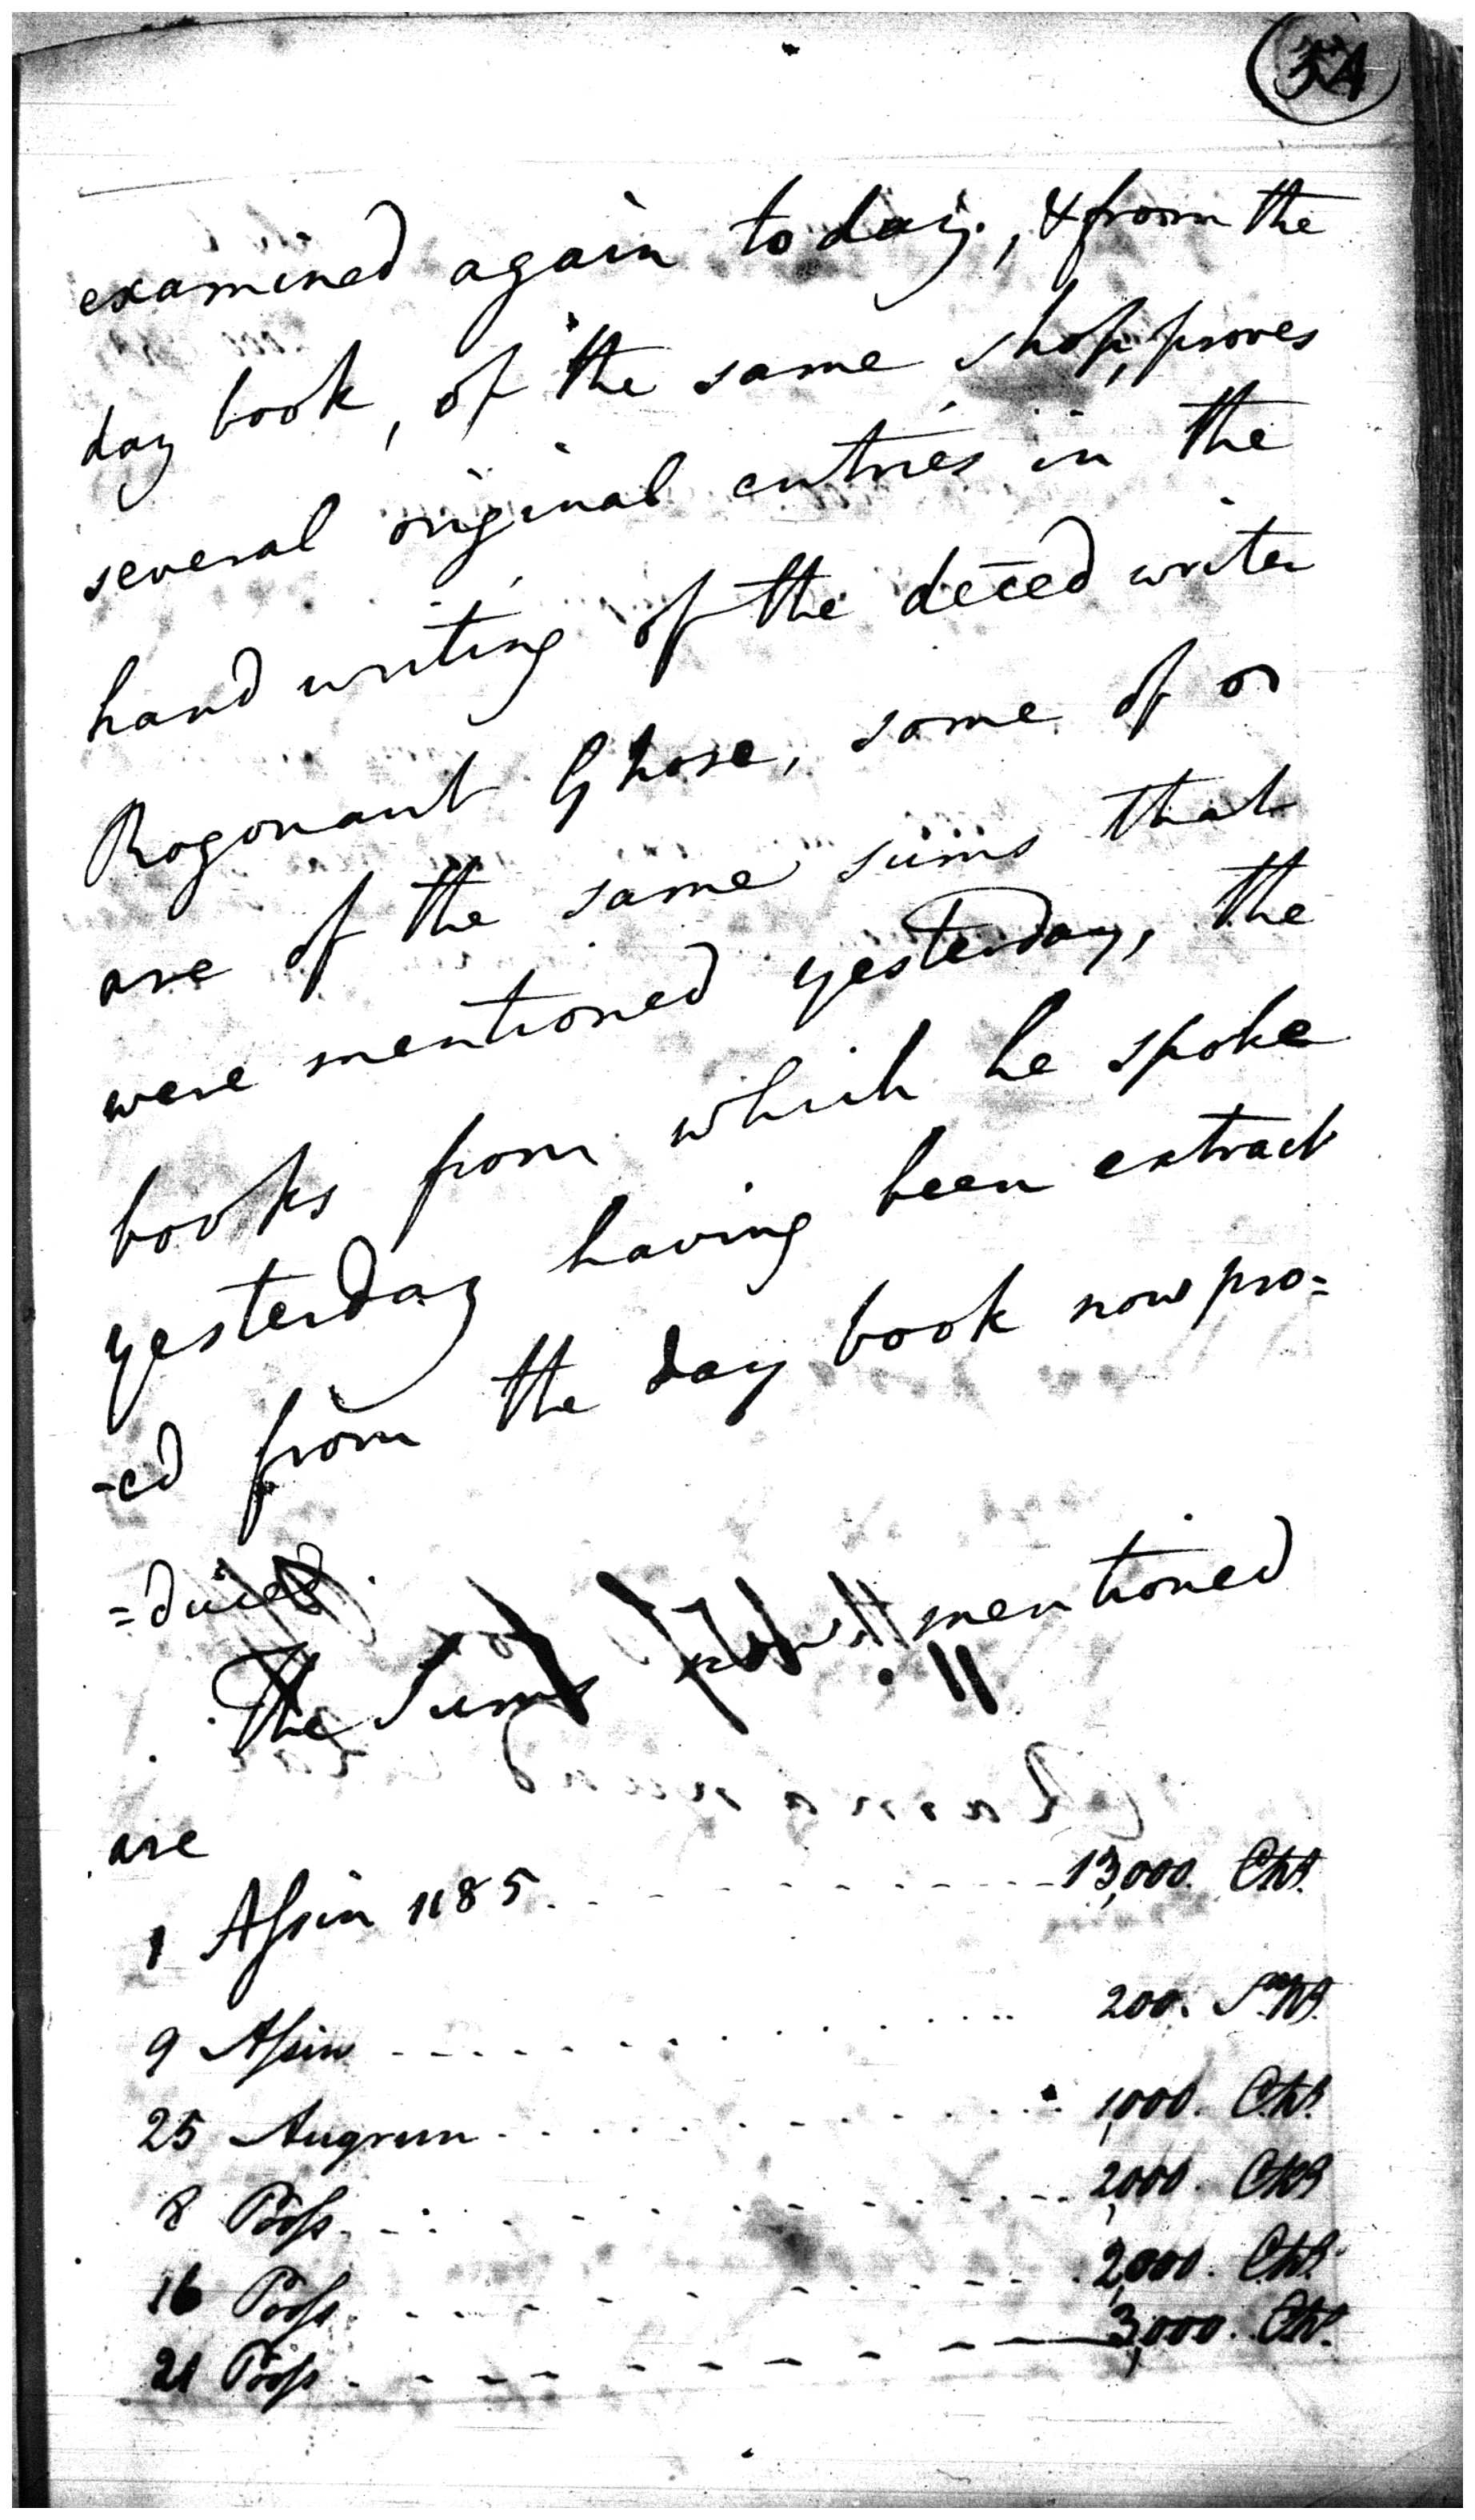 34
examined again to day, & from the
day book, of the same shop, proves
several original entries in the
hand writing of the deced writer
Rogonaut Ghose, some of
are of the same sums that
were mentioned yesterday, the
books from which he spoke
yesterday having been extract
-ed from the day book now pro=
=duced
The Sums mentioned
are
1 Assin 1185 13,000. CRs.
9 Assin 200.
25 Augrun 1,000. CRs.
8 Poss 2,000. CRs
16 Poss 2,000. CRs.
21 Poss 3,000. CRs.